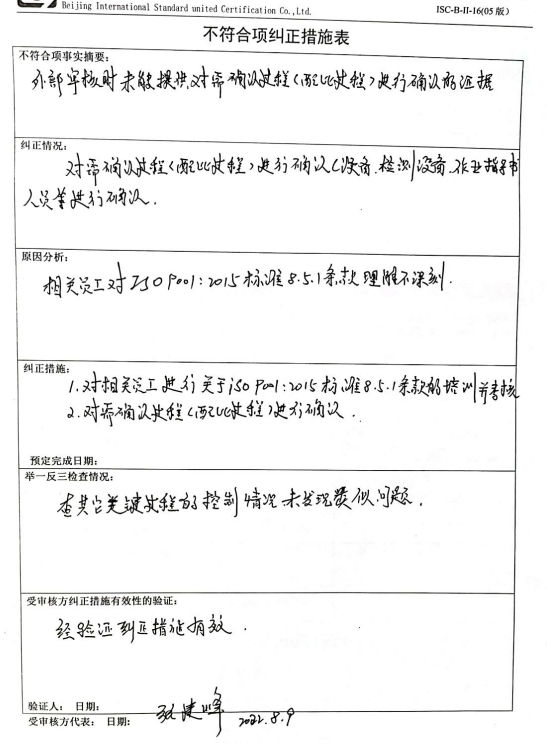 Beijing International Standard united Certification Co.,Ltd.
ISC-B-II-16(05 版)
不符合项纠正措施表
不符合项事实摘要:
外部审核时未能提供对需确认过程(配比过程)进行确认的证据
纠正情况:
对需确认过程(配比过程)进行确认(设备、检测设备、作业指导书
人员等进行确认.
原因分析:
相关员工对ISO9001:2015标准8.5.1条款理解不深刻.
纠正措施:
1.对相关员工进行关于iso 9001:2015标准8.5.1条款的培训并考核
2.对需确认过程(配比过程)进行确认.
预定完成日期:
举一反三检查情况:
查其它关键过程的控制情况未发现类似问题.
受审核方纠正措施有效性的验证:
经验证纠正措施有效.
验证人: 日期:
受审核方代表: 日期: 2022.8.9